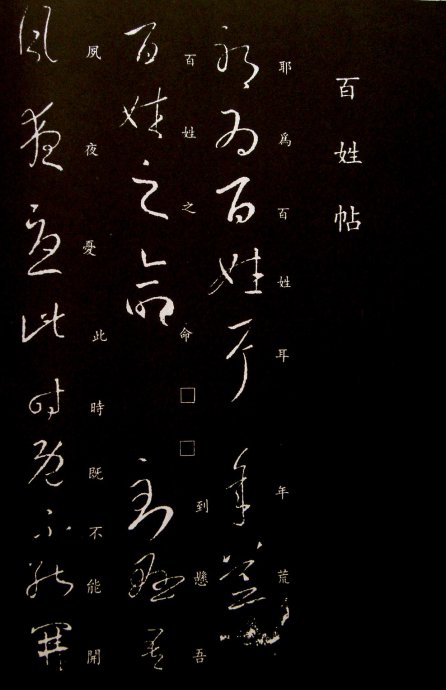 百姓帖
耶為百姓耳 年荒
百姓之命□□到懸吾
夙夜憂此時既不能開